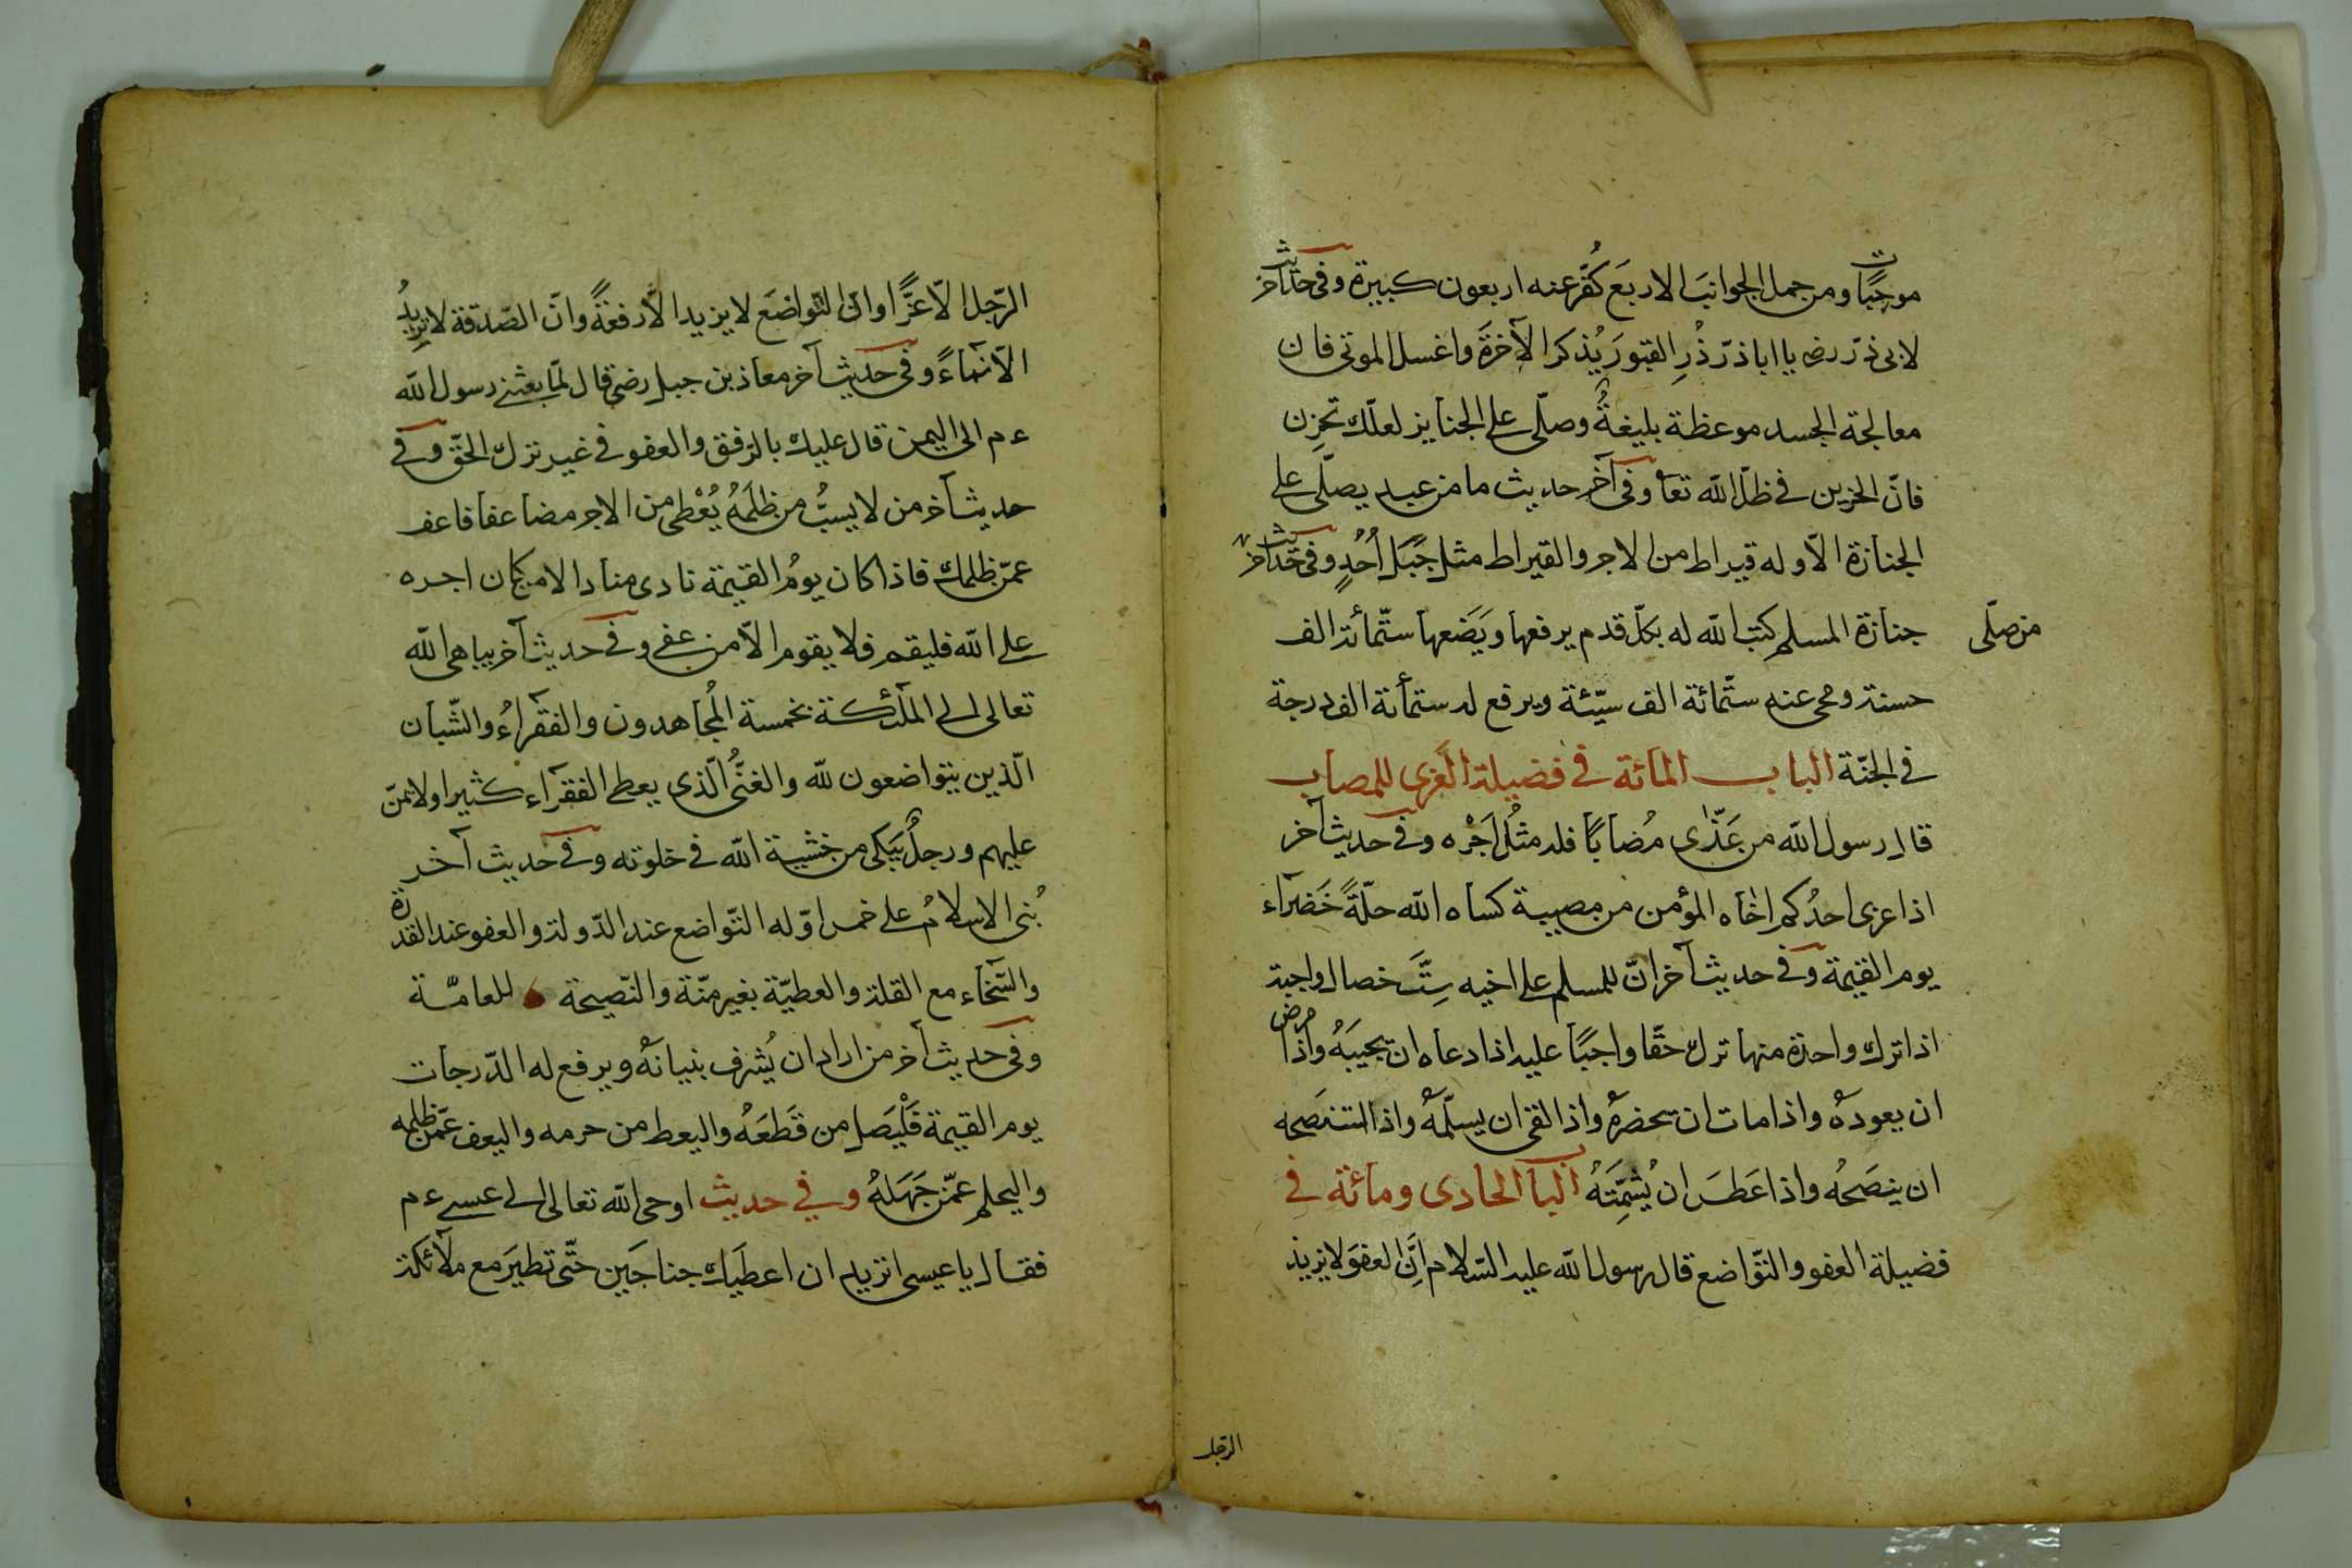 موجبًات ومن حمل الجوانبَ الاربَعَ كُفّر عنه اربعون كبيرة وفى حديث آخر
لابى ذرّ رضہ يا اباذرّ ذُرِ القبورَ يُذكر الآخرَةَ واغسل الموتى فان
معالجة الجسد موعظة بليغةٌ وصلّى على الجنايز لعلّك تحزِن
فانّ الحزين فى ظلّ الله تعا وفى آخر حديث ما من عبد يصلّى على
الجنازة الّا وله قيراط من الاجر والقيراط مثل جَبَل اُحُدٍ وفى حديث آخر
من صلّى جنازة المسلم كتب الله له بكلّ قدم يرفعها ويَضَعها ستّمائة الف
حسنة ومحى عنه ستّمائة الف سيّئة ويرفع له ستمأئة الف درجة
فى الجنّة الباب المائة فى فضيلة العزى للمصاب
قال رسول الله من عَذّى مُصابًا فله مثلُ اَجْره وفى حديث آخر
اذا عزى احدُكم اخاه المؤمن من مصيبة كساه الله حلّةً خَضراء
يوم القيمة وفى حديث آخر انّ للمسلم على اخيه سِتَّ خصال واجبة
اذا ترك واحدة منها ترك حقّا واجبًا عليه اذا دعاه ان يجيبَهُ واذا مرض
ان يعودهُ واذا مات ان يحضرهُ واذا لقى ان يسلّمهُ واذا استنصَحه
ان ينصَحهُ واذا عَطسَ ان يُشمِّتَهُ البا الحادى ومائة فى
فضيلة العفو والتّواضع قال رسول الله عليه السّلام اِنَّ العفوَ لا يزيد
الرّجل
الرّجل الّا عزًّا وانّ التّواضعَ لا يزيد الّا رفعةً وانّ الصّدقة لا تزيدُ
الّا نماءً وفى حديث آخر معاذ بن جبل رضى قال لمّا بعثنى رسول الله
ءم الى اليمن قال عليك بالرّفق والعفو فى غير ترك الحقّ وفى
حديث آخر من لا يسبُّ من ظلَمهُ يُعْطى من الاجر مضاعفا فاعف
عمّن ظلمك فاذا كان يومُ القيمة نادى مناد الا من كان اجره
على الله فليقم فلا يقوم الّا من عفى وفى حديث آخر يباهى الله
تعالى الى الملٰئكة بخمسة المُجاهدون والفقراءُ والشّبان
الّذين يتواضعون لله والغنُّى الّذى يعطى الفقراء كثيرا ولا يمنّ
عليهم ورجلٌ يَبكى من خشية الله فى خلوته وفى حديث آخر
بُنى الاسلامُ على خمس اوّله التّواضع عند الدّولة والعفو عند القدرة
والسّخاء مع القلة والعطيّة بغير منّة والنّصيحة للعامّة
وفى حديث آخر من اراد ان يُشرف بنيانهُ ويرفع له الدّرجات
يوم القيمة فَلْيَصَل من قَطَعَهُ واليعط من حرمه واليعف عمّن ظلمه
واليحلم عمّن جَهَلهُ وفي حديث اوحى الله تعالى الى عيسى ءم
فقال يا عيسى اتريد ان اعطيَك جناحَين حتّى تطيرَ مع ملآئكة